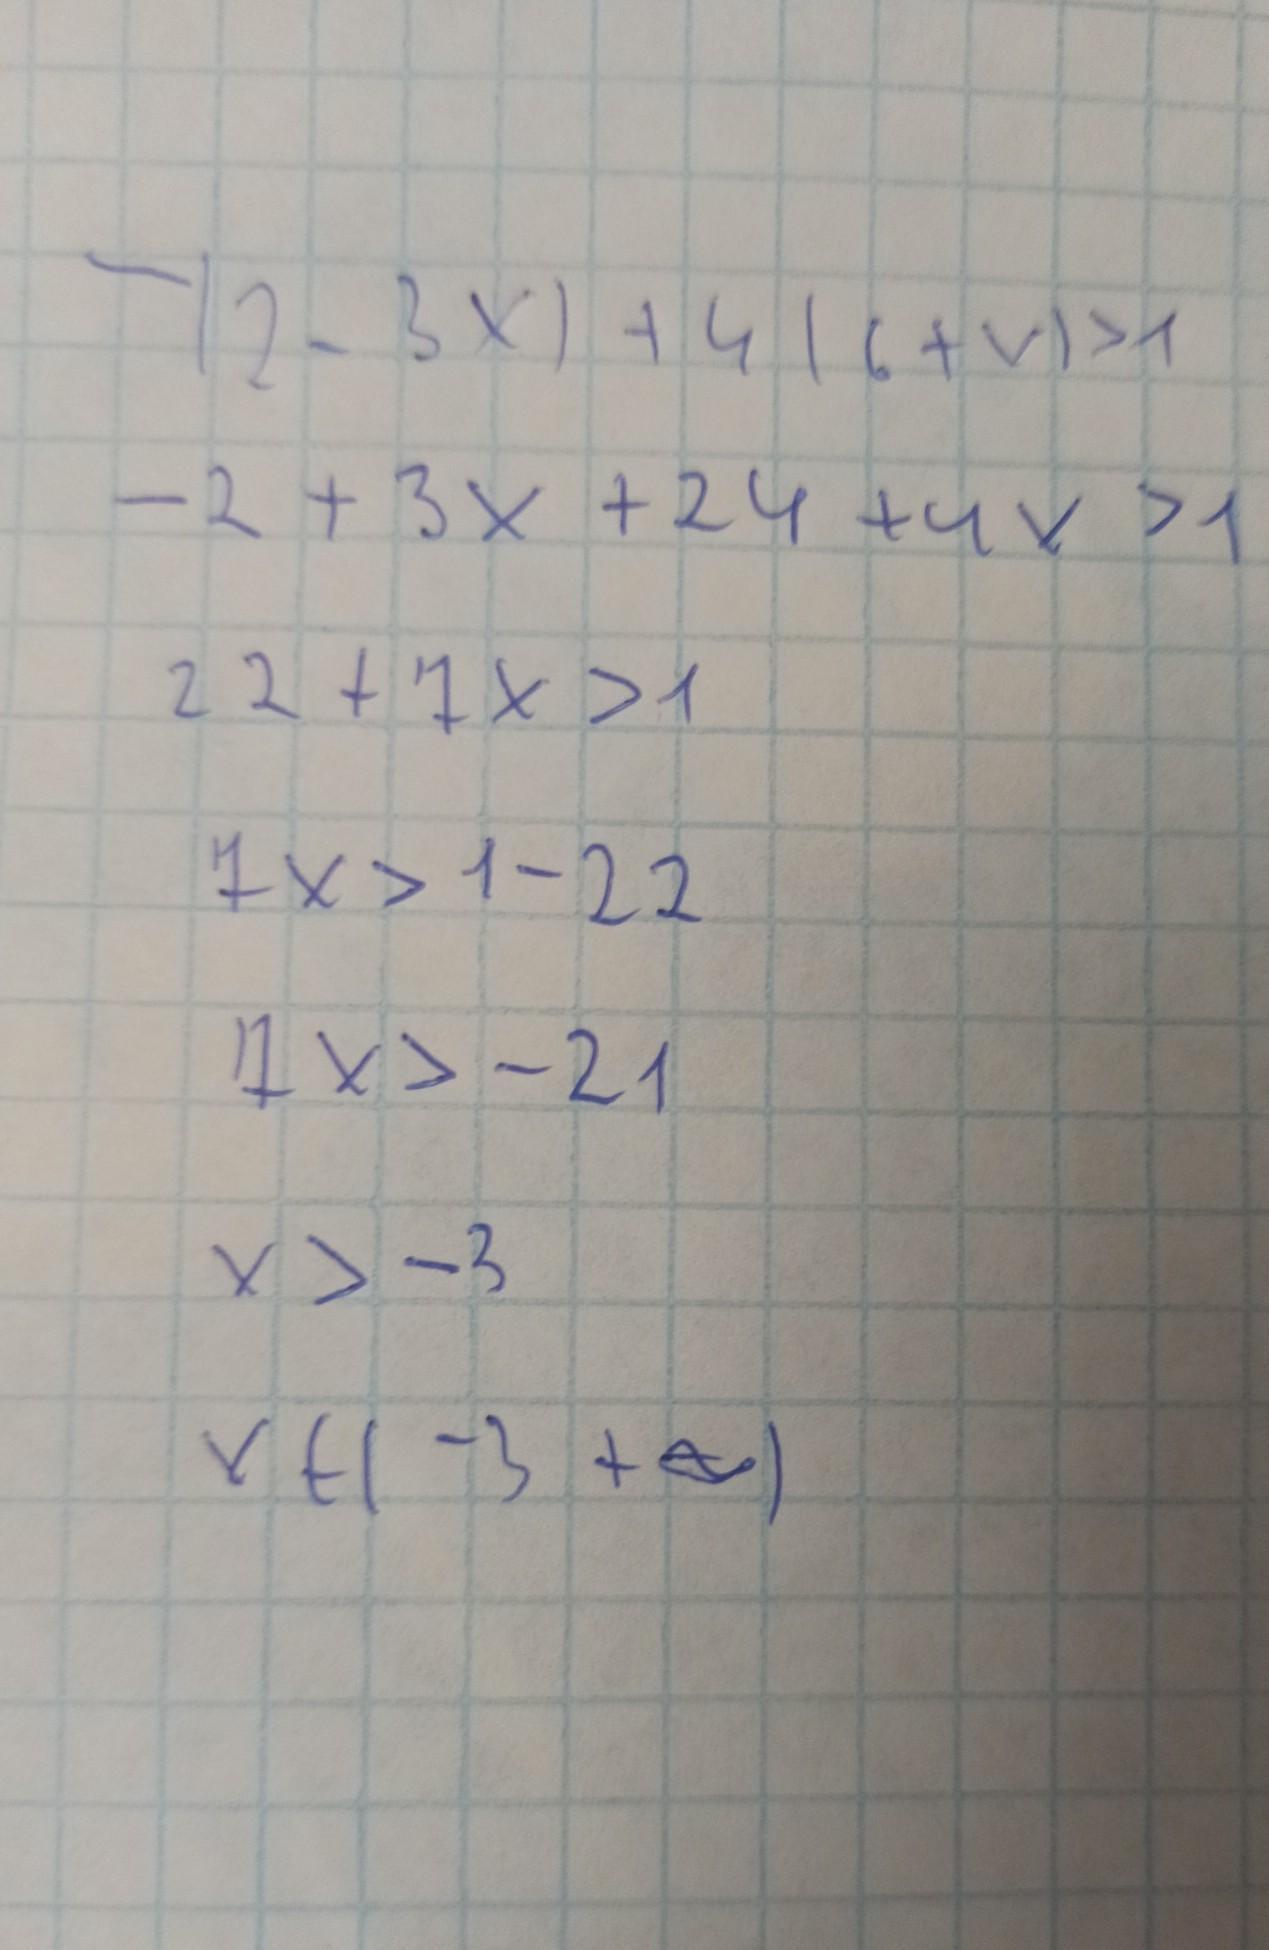 -(2-3x)+4(6+x)>1
-2+3x+24+4x>1
22+7x>1
7x>1-22
7x>-21
x>-3
x∈(-3 +∞)